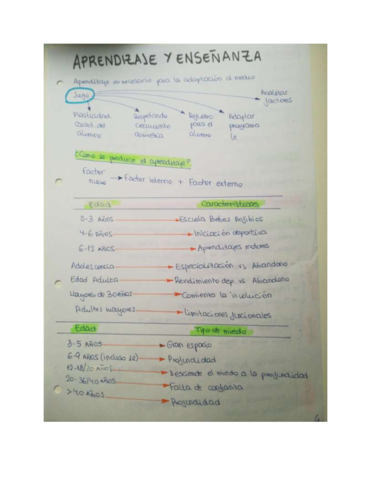 APRENDIZAJE Y ENSEÑANZA
Aprendizaje es necesario para la adaptación al medio
Analizar factores
Plasticidad
alumno
crecimiento
Registro para el alumno
Adaptar programa
¿Cómo se produce el aprendizaje?
Factor → Factor interno + Factor externo
Edad Características
0-3 AÑOS → Escuela Bebés Anfibios
4-6 AÑOS → Iniciación deportiva
6-12 AÑOS → Aprendizajes motores
Adolescencia → Especialización vs. Abandono
Edad Adulta → Rendimiento dep. vs Abandono
Mayores de 30 años → Comienza la involución
Adultos mayores → Limitaciones funcionales
Edad Tipo de miedo
3-5 AÑOS → Gran espacio
6-9 AÑOS → Profundidad
AÑOS → Desciende el miedo a la profundidad
AÑOS → Falta de confianza
>40 AÑOS → Profundidad